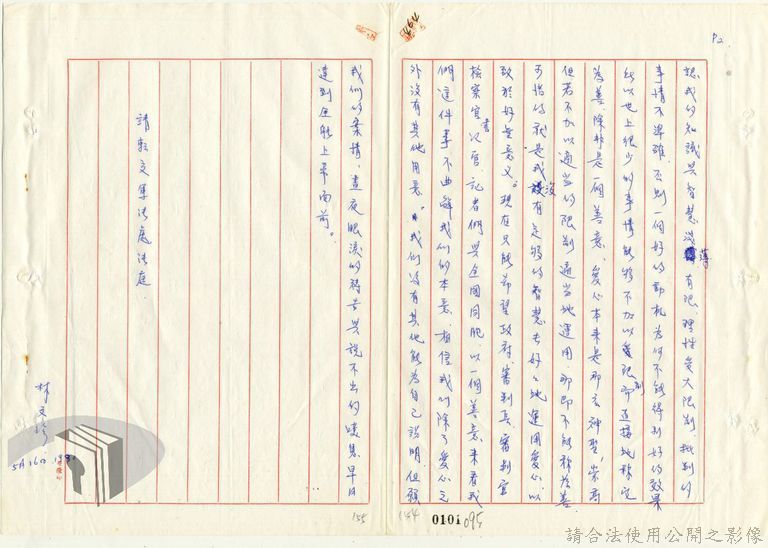 P2
認我的知識與智慧淺薄有限,理性受大限制,批判的
事情不準確,否則一個好的動机為何不能得到好的效果
所以世上很少的事情能夠不加以限制即直接地称它
為善,除非是一個善意、愛心本來是那么神聖,崇高
但若不加以適当的限制適当地運用,那即不能称為善
可怕的就是我沒有足够的智慧去好好地運用愛心,以
致於好無意义。現在只能希望政府、審判長、審判官
檢察官、書记官、記者們與全國同胞,以一個善意來看我
們這件事,不曲解我們的本意,相信我们除了愛心之
外沒有其他用意。我们沒有其他能為自己說明,但願
我们的案情,晝夜眼淚的禱告與說不出的嘆息,早日
達到全能上帝面前。
請轉交軍法處法庭
林文珍
5月16日 1980
464
155
154
0101
095
請合法使用公開之影像